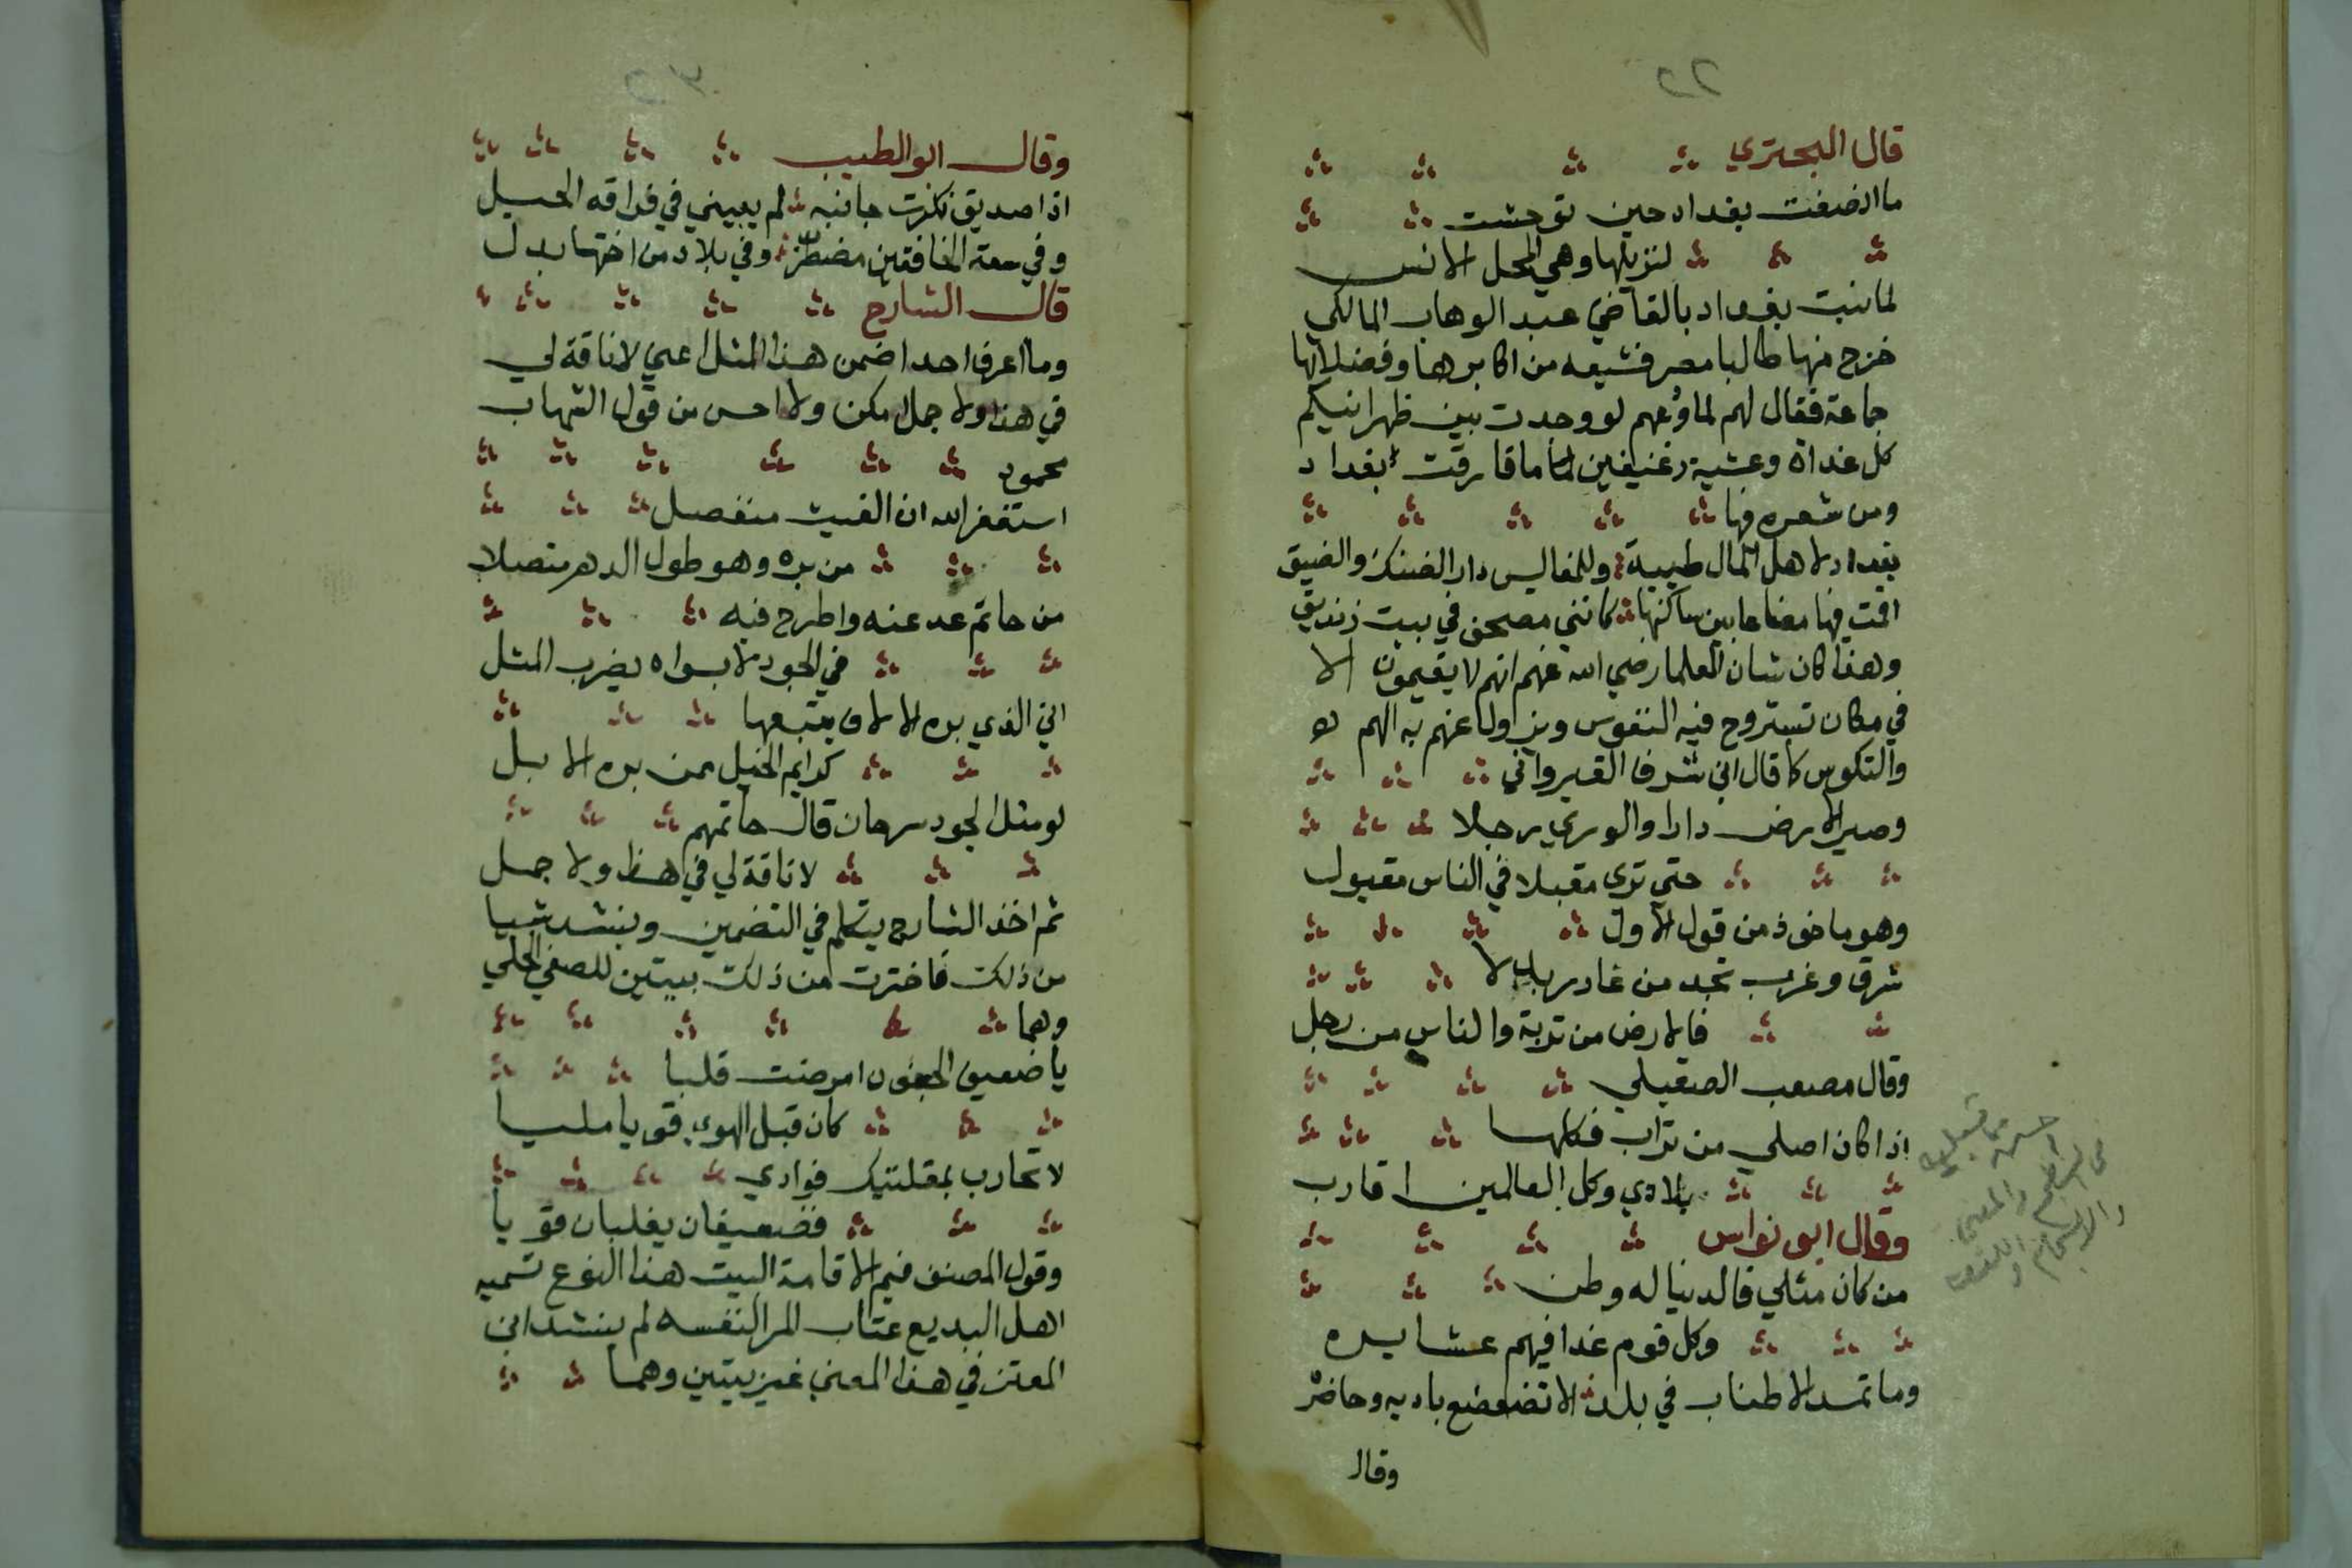 قال البحتري
ما انصفت بغداد حين توحشت
لنزيلها وهي المحل الانس
لما نبت بغداد بالقاضي عبد الوهاب المالكي
خرج منها طالبا مصر فشيعه من اكابرها وفضلائها
جماعة فقال لهم لما ودعهم لو وجدت بين ظهرانيكم
كل غداة وعشية رغيفين لما ما فارقت بغداد
ومن شعره فيها
بغداد لاهل المال طيبة وللمفاليس دار الضنك والضيق
اقمت فيها مضاعا بين ساكنها كانني مصحف في بيت زنديق
وهذا كان شان العلما رضي الله عنهم انهم لا يقيمون الا
في مكان تستروح فيه النفوس ويزول عنهم به الهم
والنكوس كما قال ابن شرف القيرواني
وصير الارض دارا والوري رجلا
حتي تري مقبلا في الناس مقبول
وهو ماخوذ من قول الاول
شرق وغرب تجد من غادر بدلا
فالارض من تربة والناس من رجل
وقال مصعب الصقيلي
اذا كان اصلي من تراب فكلها
بلادي وكل العالمين اقارب
وقال ابو نواس
من كان مثلي فالدنيا له وطن
وكل قوم غدا فيهم عشايره
وما تمد الاطناب في بلد الا تضعضع باديه وحاضر
وقال
وقال ابو الطيب
اذا صديق نكرت جانبه لم يعيني في فراقه الحيل
وفي سعة الخافقين مضطرب وفي بلاد من اختها بدل
قال الشارح
وما اعرف احدا ضمن هذا المثل اعني لا ناقة لي
في هذا ولا جمل امكن ولا احسن من قول الشهاب
محمود
استغفر الله ان الغيث منفصل
من بره وهو طول الدهر متصلا
من حاتم عد عنه واطرح فبه
في الجود لا بسواه يضرب المثل
اين الذي بره الالاف يتبعها
كرايم الخيل ممن بره الابل
لو مثل الجود سرحان قال حاتمهم
لا ناقة لي في هذا ولا جمل
ثم اخذ الشارح يتكلم في التضمين وينشد شيا
من ذلك فاخترت من ذلك بيتين للصفي الحلي
وهما
يا ضعيف الجفون امرضت قلبا
كان قبل الهوي قويا مليا
لا تحارب بمقلتيك فوادي
فضعيفان يغلبان قويا
وقول المصنف فيم الاقامة البيت هذا النوع تسميه
اهل البديع عتاب المرا لنفسه لم ينشد ابن
المعتز في هذا المعني غير بيتين وهما